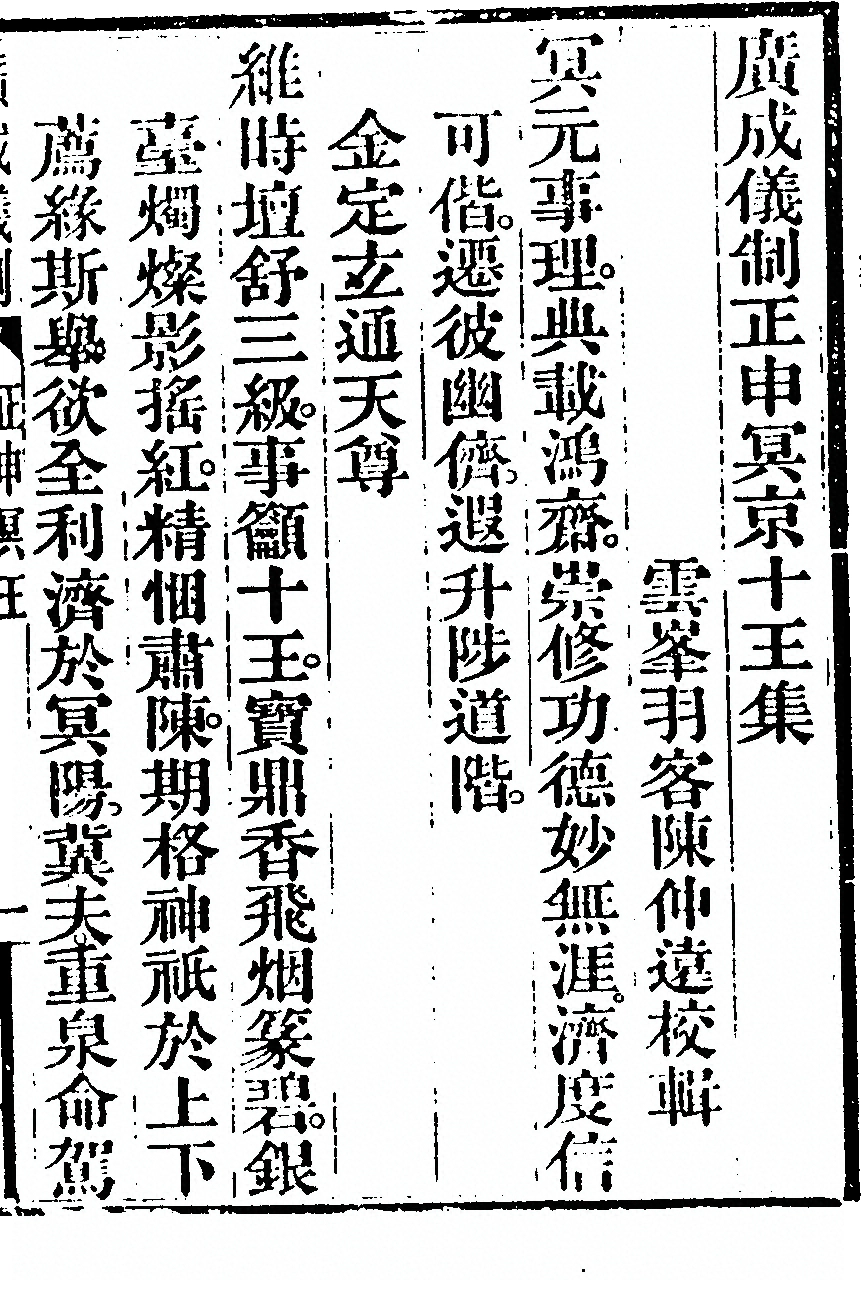 廣成儀制正申冥京十王集
雲峯羽客陳仲遠校輯
冥元事理。典載鴻齋。崇修功德妙無涯。濟度信
可偕。遷彼幽儕。遐升陟道階。
金定玄通天尊
維時壇舒三級。事籲十王。寶鼎香飛烟篆碧。銀
臺燭燦影搖紅。精悃肅陳。期格神祇於上下
薦緣斯舉。欲全利濟於冥陽。冀夫。重泉命駕